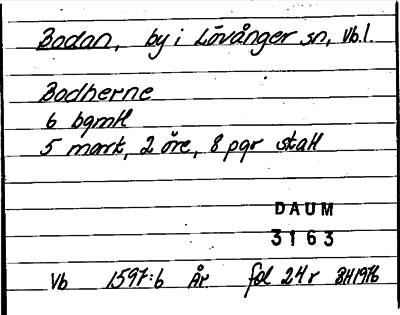 Bodan, by i Lövånger sn, Vb.l.
Bodherne
6 bgmtl
5 mark, 2 öre, 8 pgr skatt
DAUM
3163
Vb 1597:6 År fol 24r BH1976